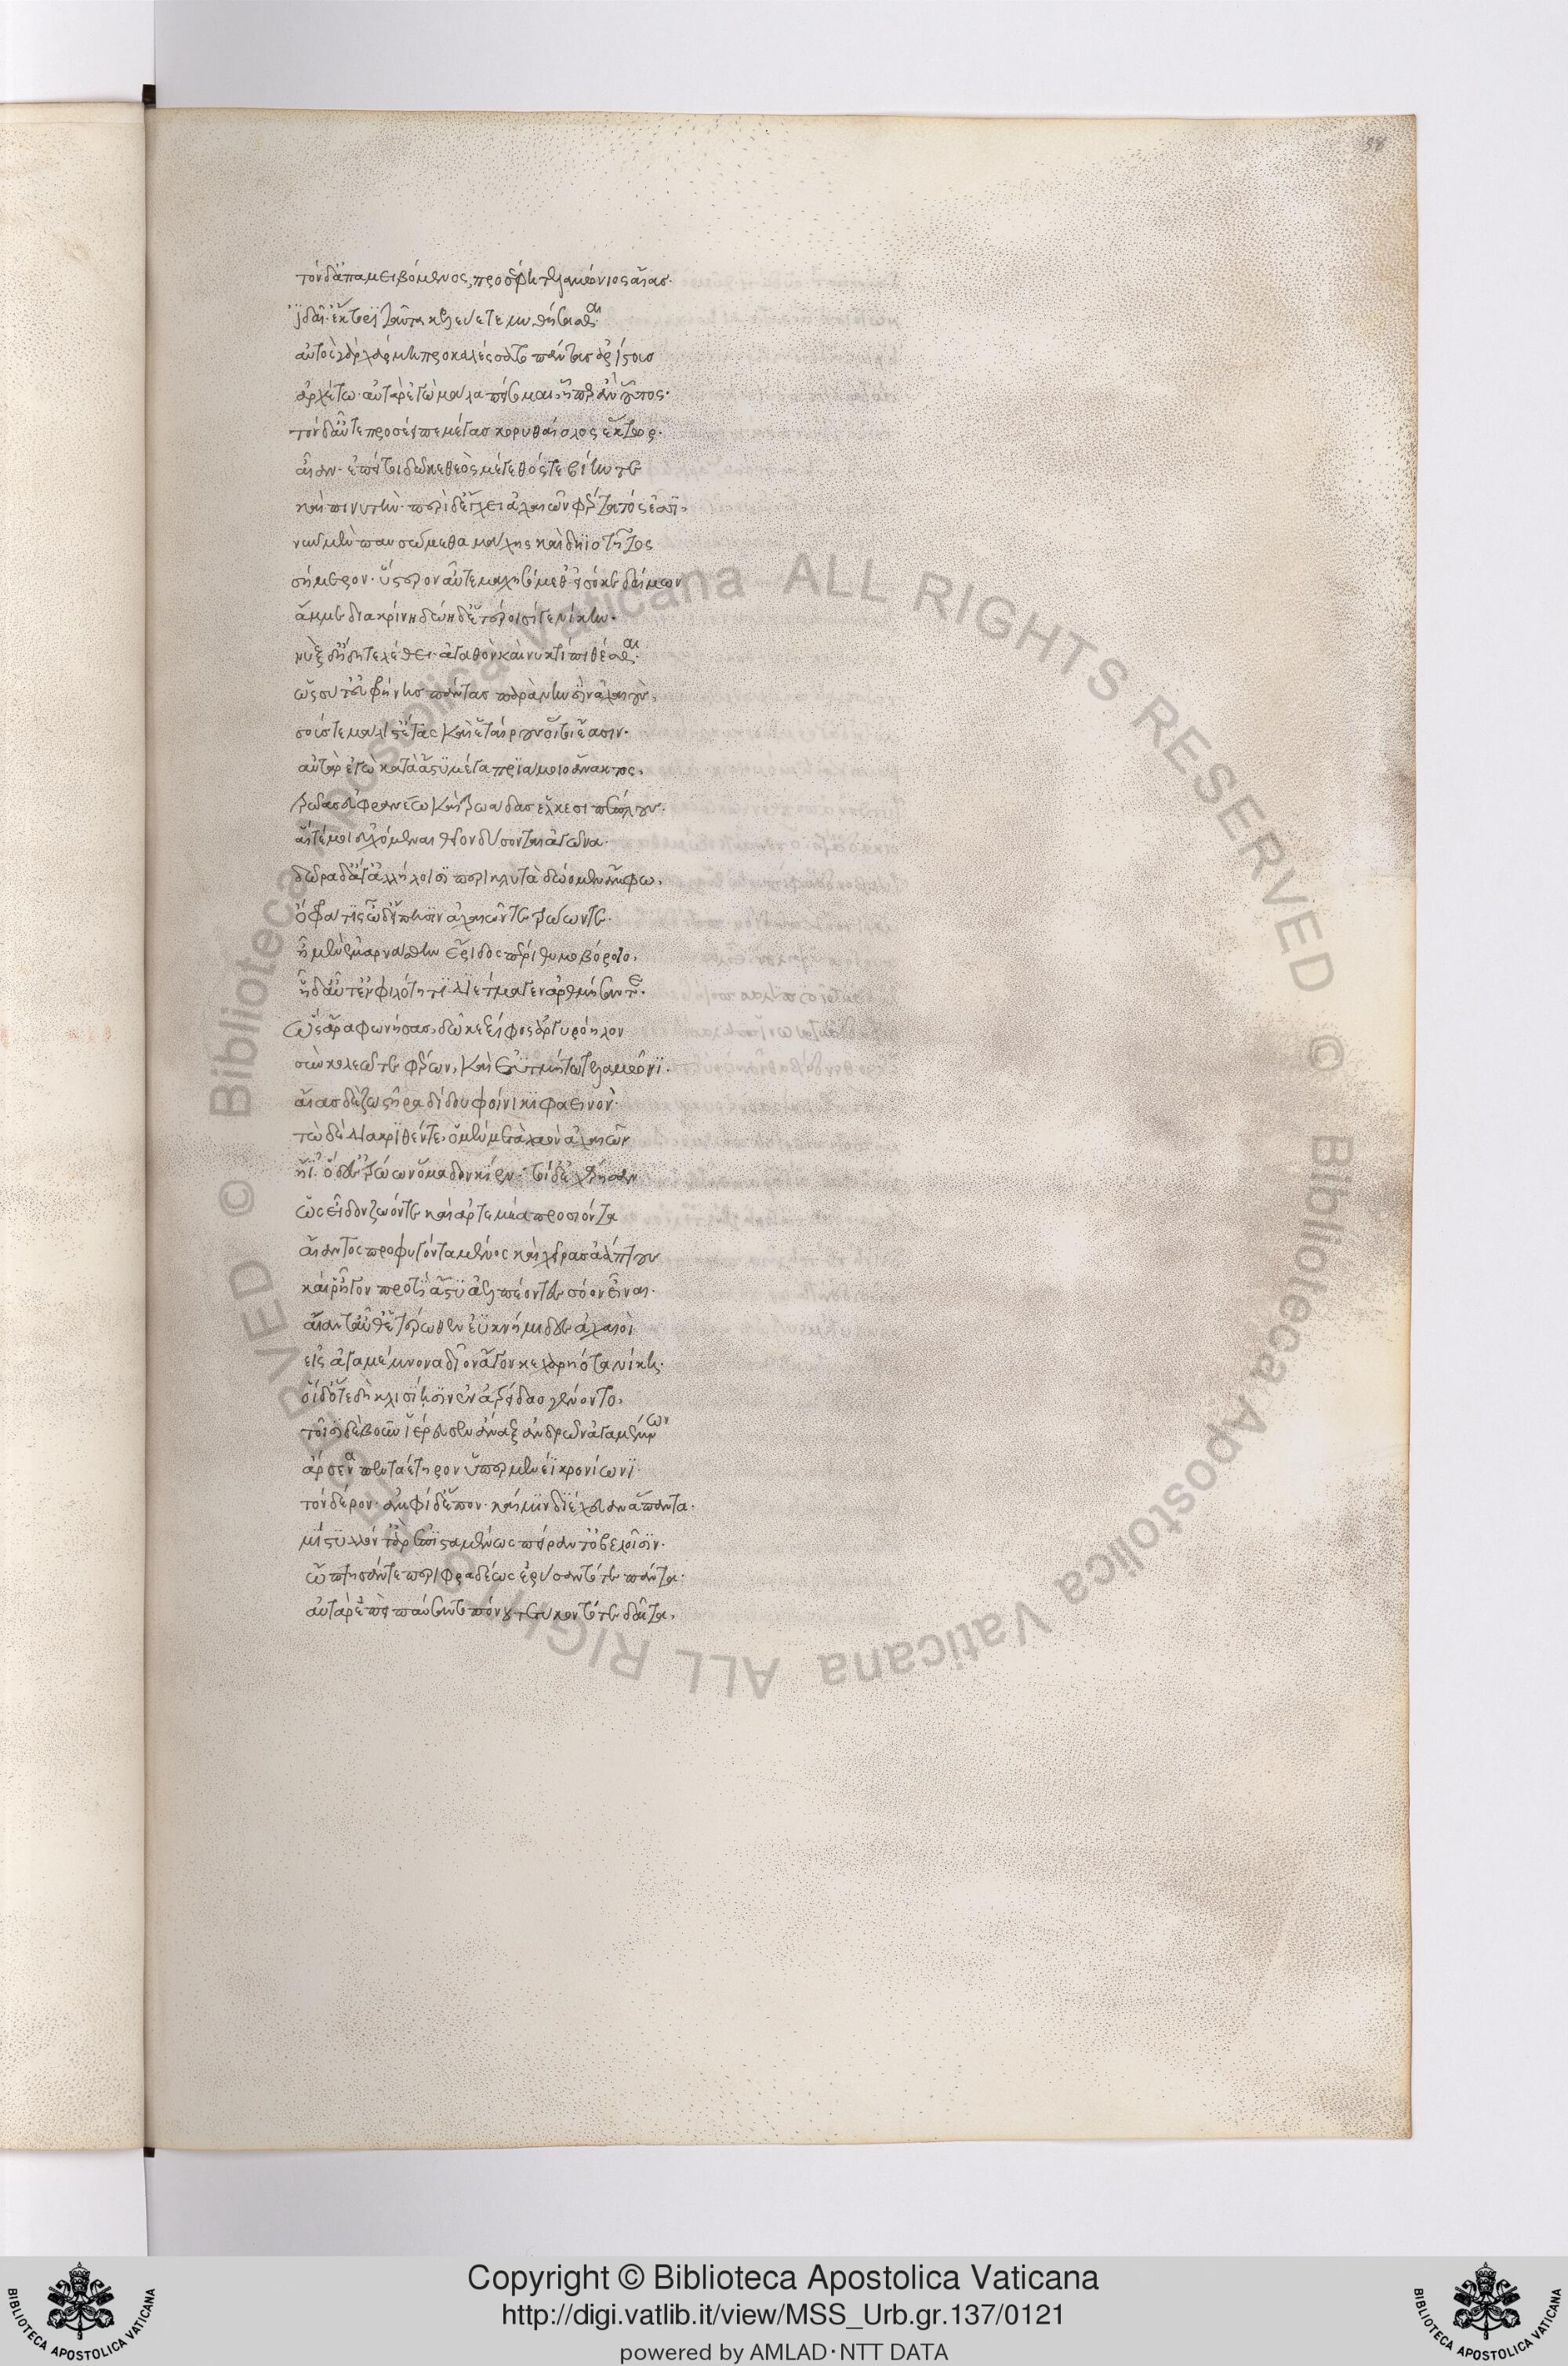 58
τὸν δ' ἀπαμειβόμενος προσέφη τελαμώνιος αἴας·
ἰδαῖ· ἕκτορα ταῦτα κελεύετε μυθήσασθαι·
αὐτὸς γὰρ χάρμῃ προκαλέσσατο πάντας ἀρίστους
ἀρχέτω· αὐτὰρ ἐγὼ μάλα πείσομαι, ᾗπερ ἂν οὗτος·
τὸν δ' αὖτε προσέειπε μέγας κορυθαίολος ἕκτωρ·
αἶαν· ἐπεί τοι δῶκε θεὸς μέγεθός τε βίην τε
καὶ πινυτήν· περὶ δ' ἔγχει ἀχαιῶν φέρτατός ἐσσι,
νῦν μὲν παυσώμεθα μάχης καὶ δηϊοτῆτος
σήμερον· ὕστερον αὖτε μαχησόμεθ' εἰσόκε δαίμων
ἄμμε διακρίνῃ δώῃ δ' ἑτέροισί γε νίκην·
νὺξ δ' ἤδη τελέθει· ἀγαθὸν καὶ νυκτὶ πιθέσθαι·
ὡς σύ τ' ἐϋφρήνῃς πάντας παρὰ νηυσὶν ἀχαιούς,
σούς τε μάλιστα ἔτας καὶ ἑταίρους οἵ τοι ἔασιν·
αὐτὰρ ἐγὼ κατὰ ἄστυ μέγα πριάμοιο ἄνακτος,
τρῶας ἐϋφρανέω καὶ τρωάδας ἑλκεσιπέπλους·
αἵτέ μοι εὐχόμεναι θεῖον δύσονται ἀγῶνα·
δῶρα δ' ἄγ' ἀλλήλοισι περικλυτὰ δώομεν ἄμφω,
ὄφρα τις ὧδ' εἴπῃσιν ἀχαιῶν τε τρώων τε·
ἠμὲν ἐμαρνάσθην ἔριδος πέρι θυμοβόροιο,
ἠδ' αὖτ' ἐν φιλότητι διέτμαγεν ἀρθμήσαντε·
ὣς ἄρα φωνήσας, δῶκε ξίφος ἀργυρόηλον
σὺν κολεῷ τε φέρων, καὶ ἐϋτμήτῳ τελαμῶνι·
αἴας δὲ ζωστῆρα δίδου φοίνικι φαεινόν·
τὼ δὲ διακριθέντε, ὁ μὲν μετὰ λαὸν ἀχαιῶν
ἤϊ'· ὁ δ' ἐς τρώων ὅμαδον κίεν· τοὶ δ' ἐχάρησαν
ὡς εἶδον ζωόν τε καὶ ἀρτεμέα προσιόντα
αἴαντος προφυγόντα μένος καὶ χεῖρας ἀάπτους
καί ῥ' ἦγον προτὶ ἄστυ ἀελπτέοντες σόον εἶναι·
αἴαντ' αὖθ' ἑτέρωθεν ἐϋκνήμιδες ἀχαιοὶ
εἰς ἀγαμέμνονα δῖον ἄγον κεχαρηότα νίκῃ·
οἱ δ' ὅτε δὴ κλισίῃσιν ἐν ἀτρείδαο γένοντο,
τοῖσι δὲ βοῦν ἱέρευσεν ἄναξ ἀνδρῶν ἀγαμέμνων
ἄρσενα πενταέτηρον ὑπερμενέϊ κρονίωνι·
τὸν δέρον· ἀμφί θ' ἕπον· καί μιν διέχευαν ἅπαντα·
μίστυλλόν τ' ἄρ' ἐπισταμένως πεῖράν τ' ὀβελοῖσιν·
ὤπτησάν τε περιφραδέως ἐρύσαντό τε πάντα·
αὐτὰρ ἐπεὶ παύσαντο πόνου τετύκοντό τε δαῖτα,
Copyright © Biblioteca Apostolica Vaticana
http://digi.vatlib.it/view/MSS_Urb.gr.137/0121
powered by AMLAD·NTT DATA